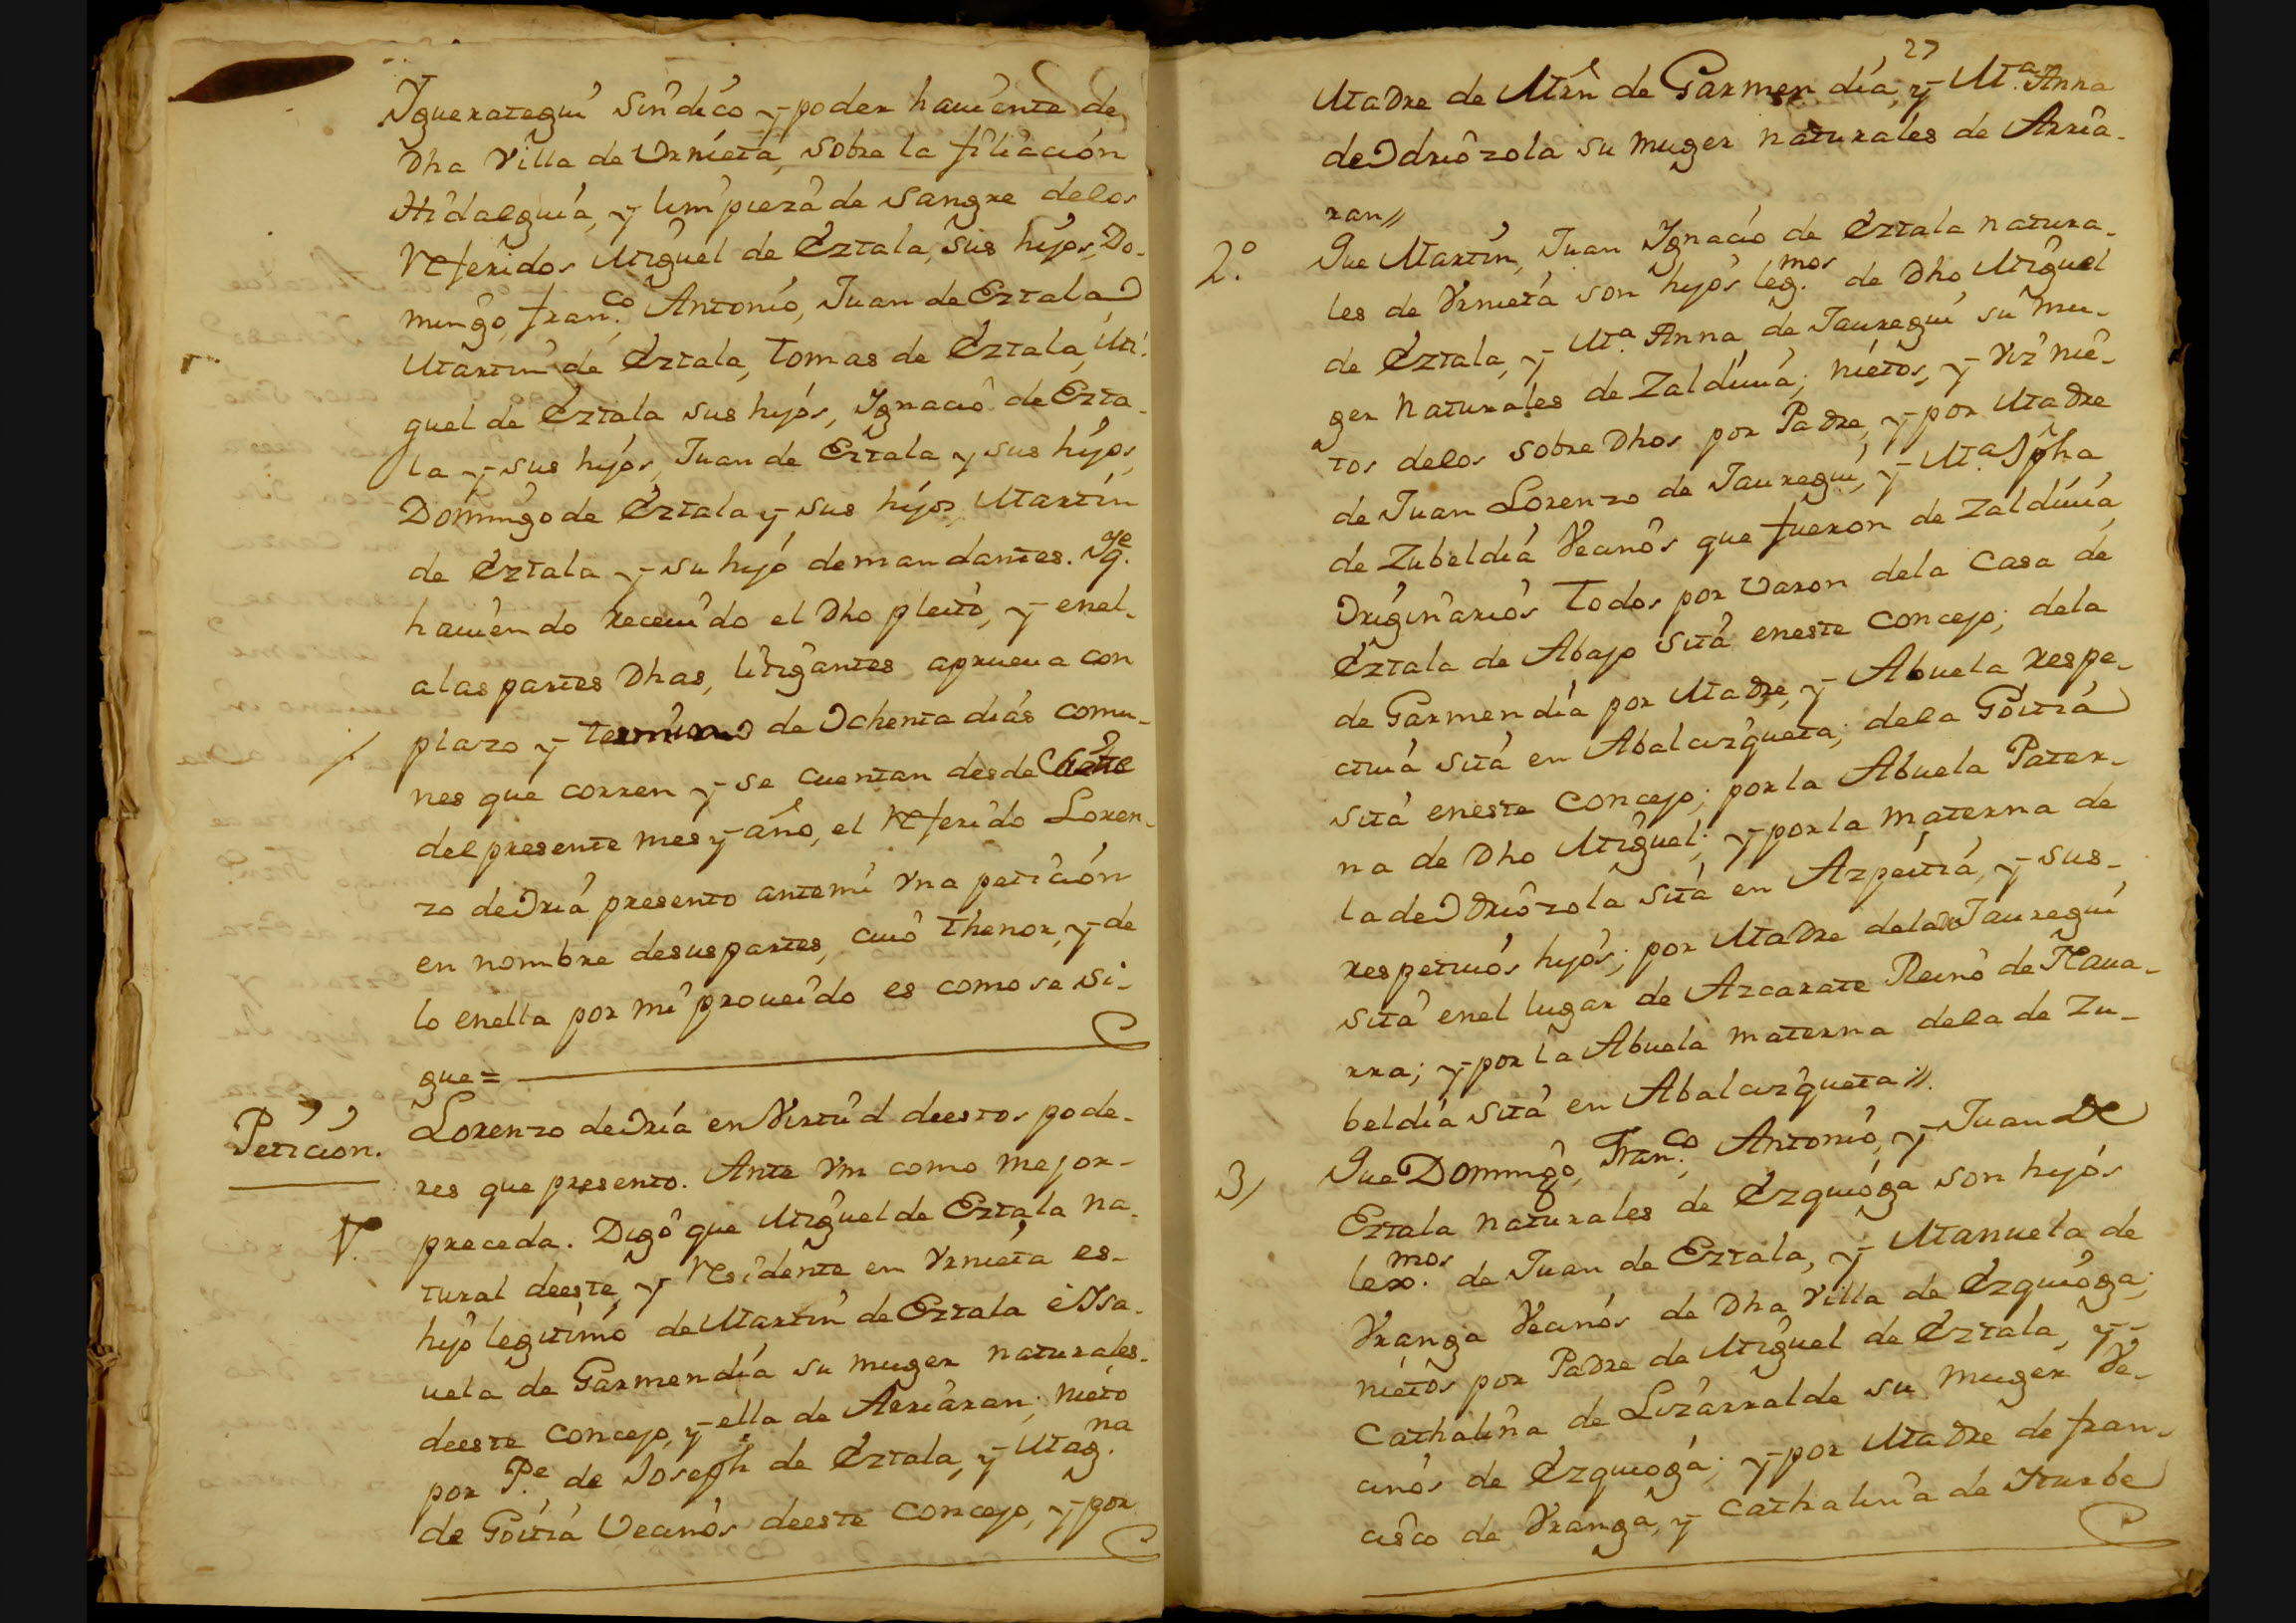 Yguerategui Sindico y poder hauiente de
Dha Villa de Urnieta, sobre la filiación
Hidalguia, y limpieza de sangre delos
referidos Miguel de Eztala, sus hijos, Do-
mingo, Fran.co Antonio, Juan de Eztala
Martin de Eztala, Tomas de Eztala, Mi-
guel de Eztala sus hijos, Ygnacio de Ezta-
la y sus hijos, Juan de Eztala y sus hijos,
Domingo de Eztala y sus hijos, Martin
de Eztala y su hijo demandantes. Y q.e
hauiendo receuido el Dho pleito, y enel-
alas partes Dhas, litigantes aprueua con
plazo y termino de Ochenta dias comu-
nes que corren y se cuentan desde
del presente mes y año, el referido Loren-
zo de Oria presento antemi vna petición
en nombre desus partes, cuio thenor, y de
lo enella por mi proueido es como se si-
gue =
Petición.
Lorenzo de Oria en Virtud deestos pode-
res que presento. Ante Vm como mejor-
preceda. Digo que Miguel de Eztala na-
tural deeste, y residente en Vrnieta es-
hijo legitimo de Martin de Eztala è Ysa-
uela de Garmendia su muger naturales-
deeste concejo, y ella de Arriaran; nieto
por P.e de Joseph de Eztala, y Mag.na
de Goitia Vecinos deeste concejo, y por
27
Madre de Mrn de Garmendia, y M.a Anna
de Odriozola su muger naturales de Arria-
ran//
2.o Que Martin, Juan Ygnacio de Eztala natura-
les de Vrnieta son hijos leg.mos de Dho Miguel
de Eztala, y M.a Anna de Jauregui su mu-
ger naturales de Zaldiuia; nietos, y viznie-
tos delos sobre Dhos por Padre, y por Madre
de Juan Lorenzo de Jauregui, y M.a Jpha
de Zubeldia Vecinos que fueron de Zaldiuia
Originarios todos por varon dela Casa de
Eztala de Abajo sita eneste concejo; dela
de Garmendia por Madre, y Abuela respe-
ctiua sita en Abalcizqueta; dela Goitia
sita eneste concejo; por la Abuela Pater-
na de Dho Miguel; y por la materna de
la de Odriozola sita en Azpeitia, y sus-
respetiuos hijos; por Madre dela de Jauregui
sita enel lugar de Azcarate Reino de Naua-
rra; y por la Abuela materna dela de Zu-
beldia sita en Abalcizqueta//.
3/ Que Domingo, Fran.co Antonio, y Juan de
Eztala naturales de Ezquioga son hijos
lex.mos de Juan de Eztala, y Manuela de
Vranga Vecinos de Dha Villa de Ezquioga;
nietos por Padre de Miguel de Eztala, y-
Cathalina de Lizarralde su muger Ve-
cinos de Ezquioga; y por Madre de Fran-
cisco de Vranga, y Cathalina de Yturbe